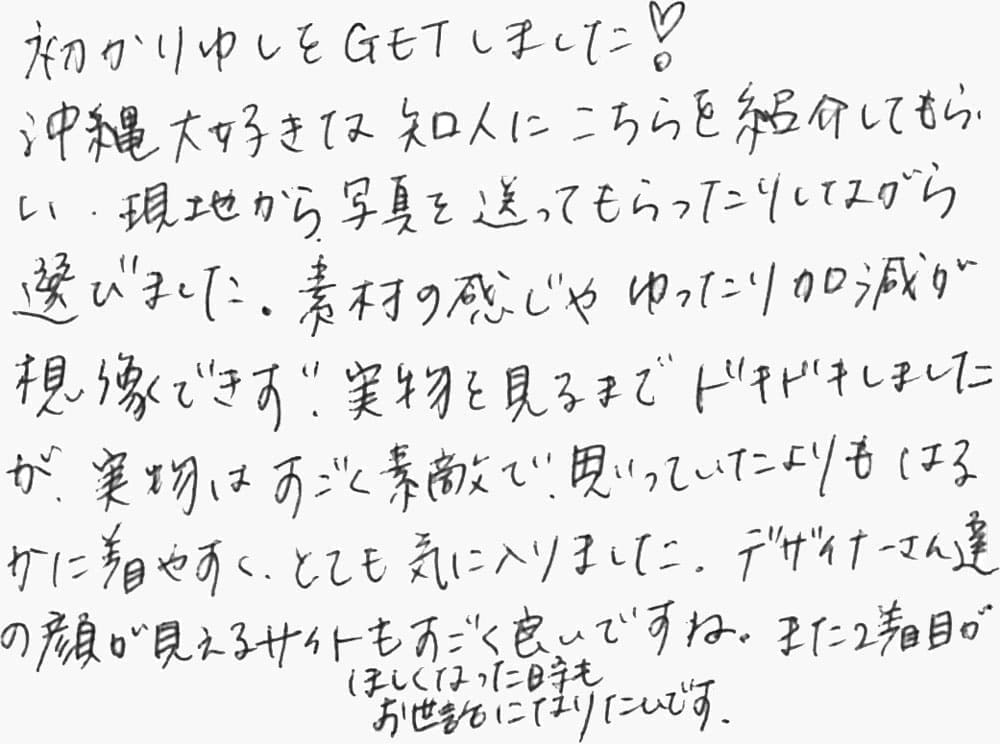 初かりゆしをGETしました♡
沖縄大好きな知人にこちらを紹介してもら
い、現地から写真を送ってもらったりしながら
選びました。素材の感じやゆったり加減が
想像できず、実物を見るまでドキドキしました
が、実物はすごく素敵で、思っていたよりもはる
かに着やすく、とても気に入りました。デザイナーさん達
の顔が見えるサイトもすごく良いですね。また2着目が
ほしくなった時も
お世話になりたいです。